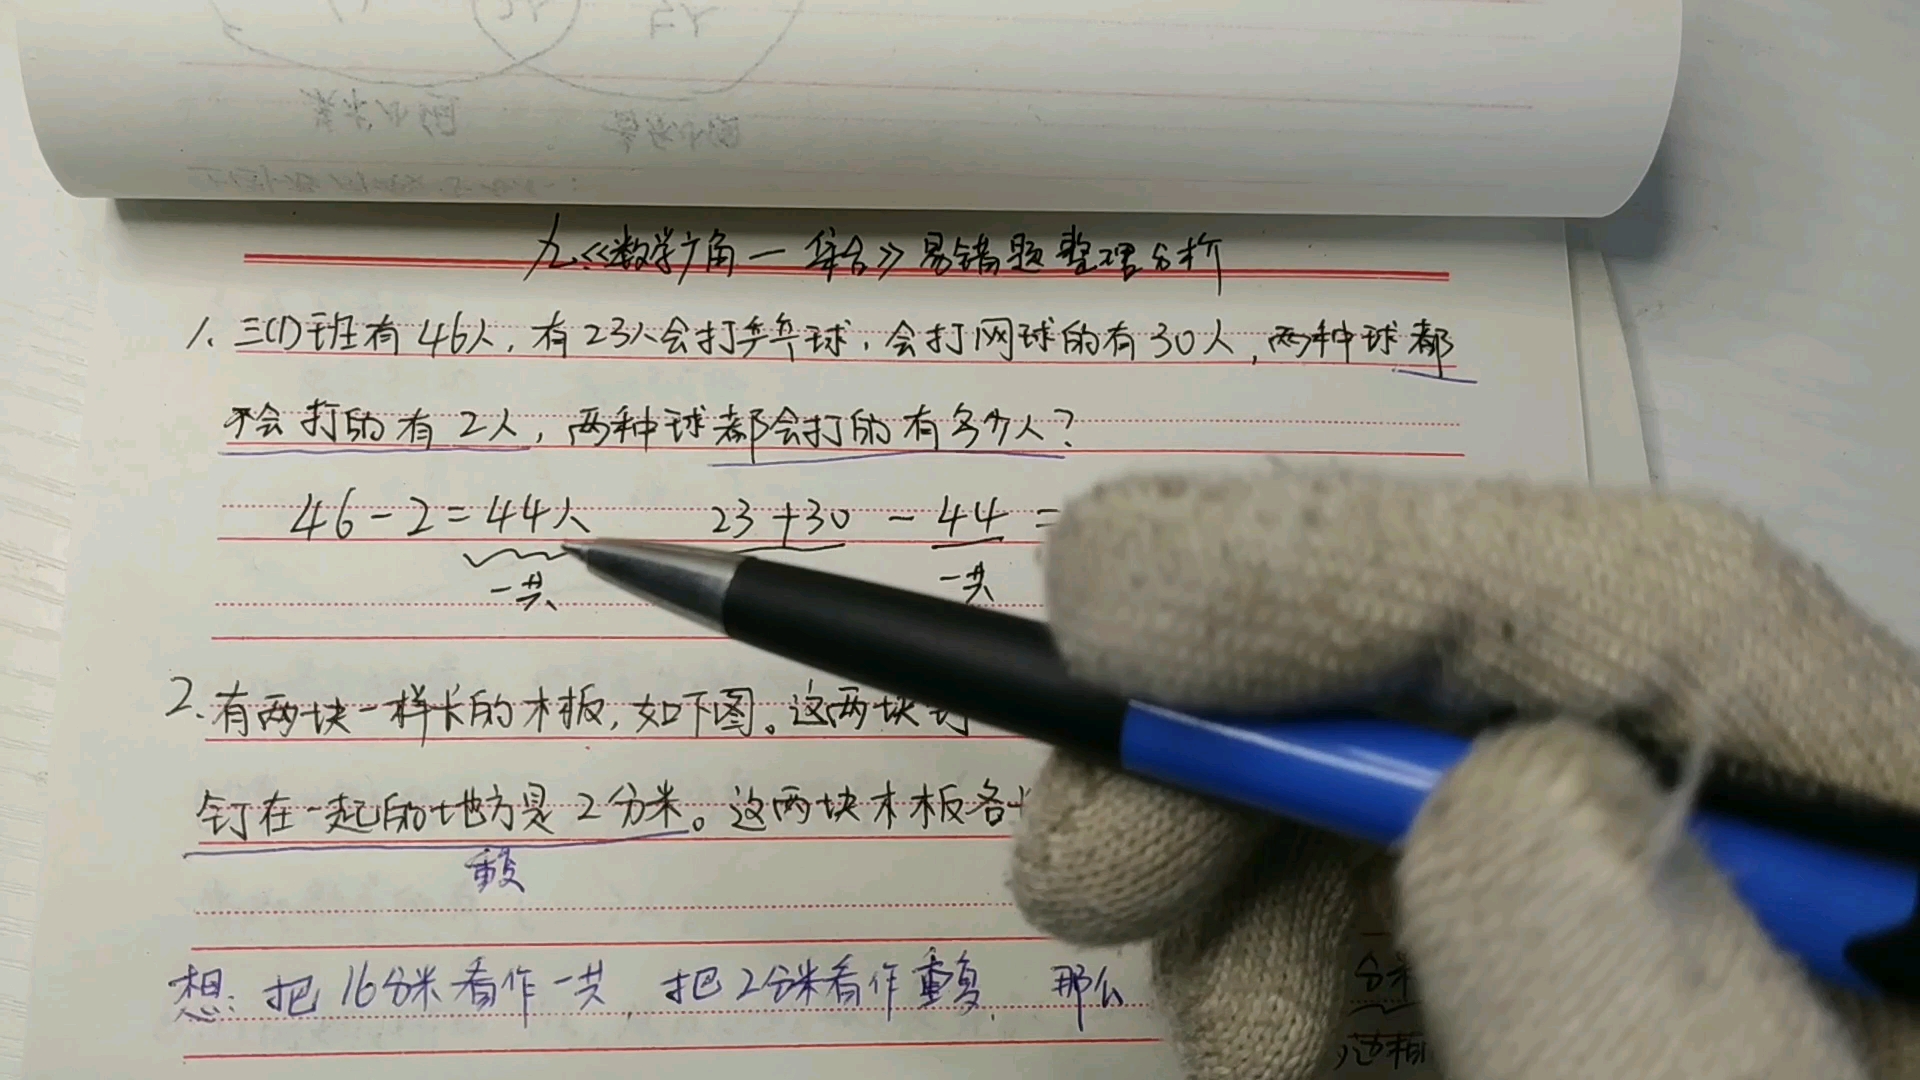 九《数学广角一集合》易错题整理分析
1.三(1)班有46人,有23人会打乒乓球,会打网球的有30人,两种球都
不会打的有2人,两种球都会打的有多少人?
46-2=44人 23+30-44=
一共 一共
2.有两块一样长的木板,如下图。这两块钉
钉在一起的地方是2分米。这两块木板各长
重复
想:把16分米看作一共,把2分米看作重复,那么
分米